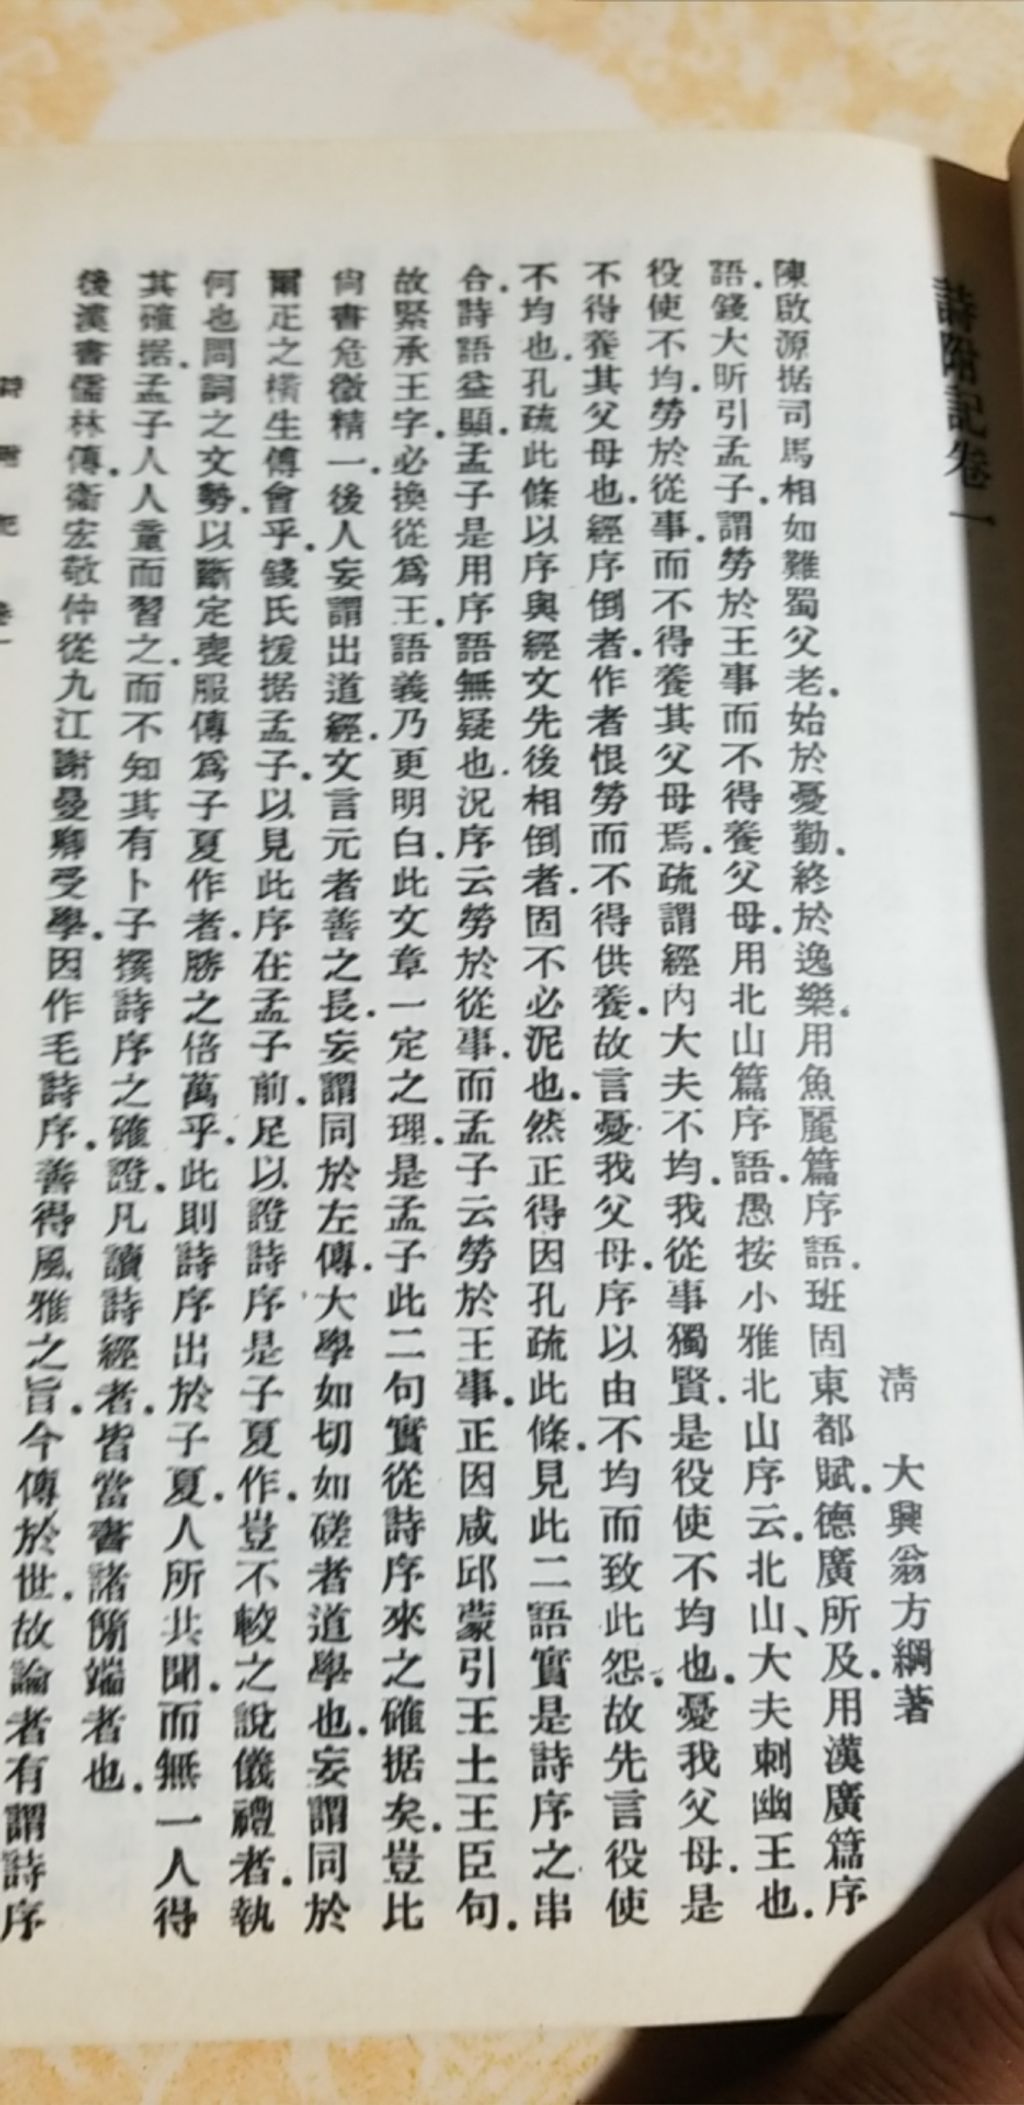 詩附記卷一
清 大興翁方綱著
陳啟源据司馬相如難蜀父老．始於憂勤．終於逸樂．用魚麗篇序語．班固東都賦．德廣所及．用漢廣篇序
語．錢大昕引孟子．謂勞於王事而不得養父母．用北山篇序語．愚按小雅北山序云．北山、大夫刺幽王也．
役使不均．勞於從事．而不得養其父母焉．疏謂經內大夫不均．我從事獨賢．是役使不均也．憂我父母．是
不得養其父母也．經序倒者．作者恨勞而不得供養．故言憂我父母．序以由不均而致此怨．故先言役使
不均也．孔疏此條以序與經文先後相倒者．固不必泥也．然正得因孔疏此條．見此二語實是詩序之串
合．詩語益顯．孟子是用序語無疑也．況序云勞於從事．而孟子云勞於王事．正因咸邱蒙引王土王臣句．
故緊承王字．必換從爲王．語義乃更明白．此文章一定之理．是孟子此二句實從詩序來之確据矣．豈比
尙書危微精一．後人妄謂出道經．文言元者善之長．妄謂同於左傳．大學如切如磋者道學也．妄謂同於
爾疋之橫生傅會乎．錢氏援据孟子．以見此序在孟子前．足以證詩序是子夏作．豈不較之說儀禮者．執
何也問詞之文勢．以斷定喪服傳爲子夏作者．勝之倍萬乎．此則詩序出於子夏．人所共聞．而無一人得
其確据．孟子人人童而習之．而不知其有卜子撰詩序之確證．凡讀詩經者．皆當書諸簡端者也．
後漢書儒林傳．衞宏敬仲從九江謝曼卿受學．因作毛詩序．善得風雅之旨．今傳於世．故論者有謂詩序
詩附記 卷一